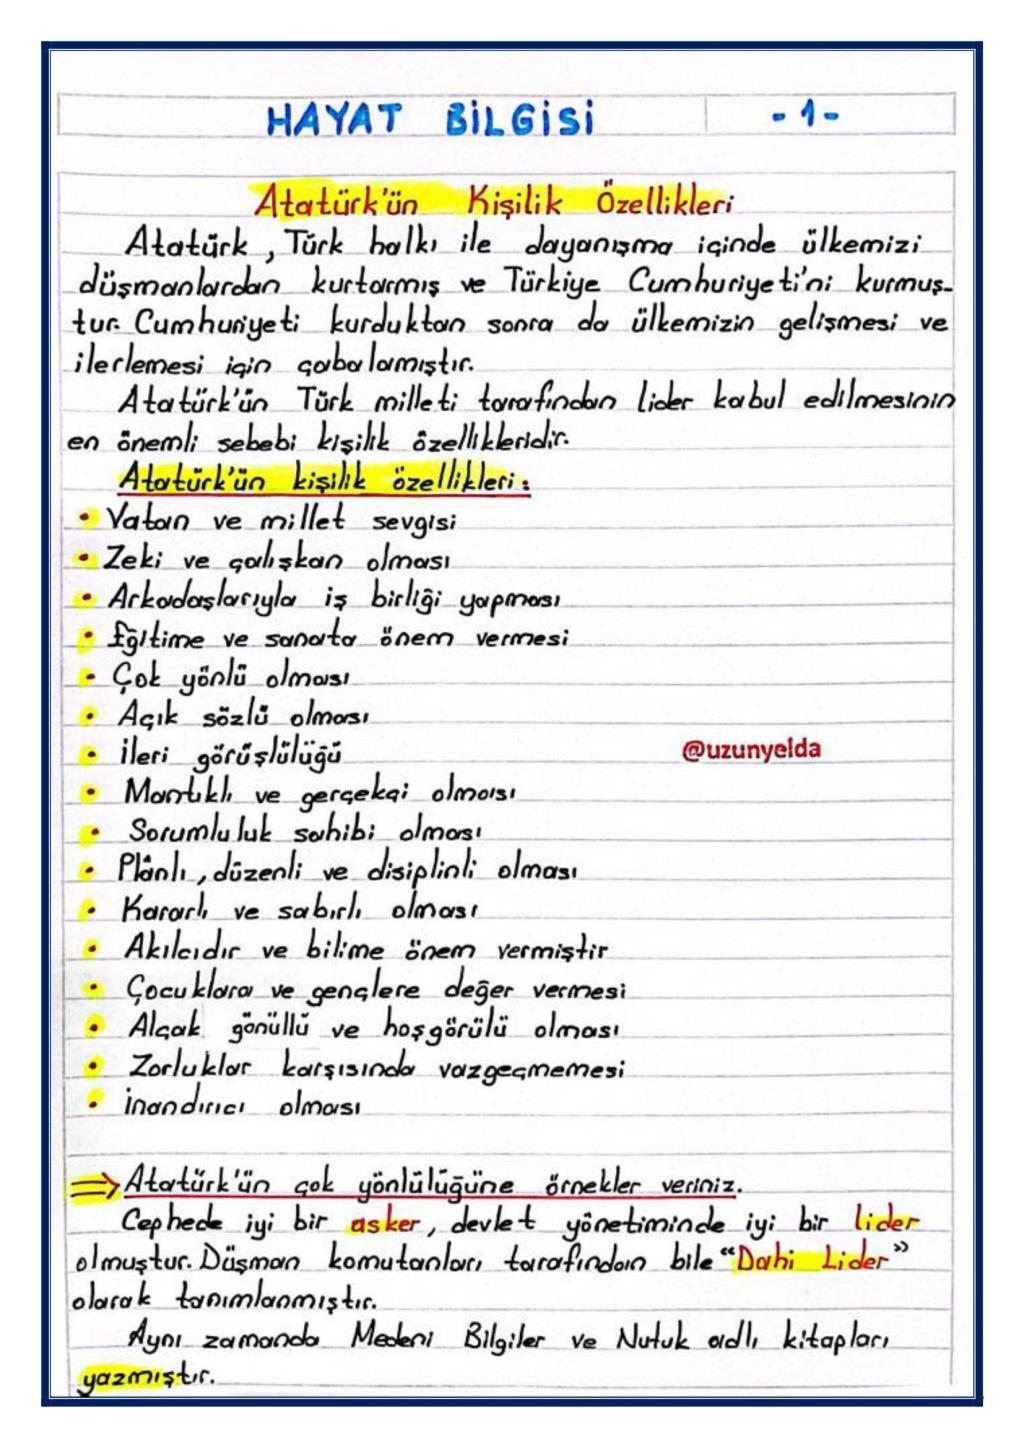 HAYAT BİLGİSİ -1-
Atatürk'ün Kişilik Özellikleri
Atatürk, Türk halkı ile dayanışma içinde ülkemizi
düşmanlardan kurtarmış ve Türkiye Cumhuriyeti'ni kurmuş-
tur. Cumhuriyeti kurduktan sonra da ülkemizin gelişmesi ve
ilerlemesi için çabalamıştır.
Atatürk'ün Türk milleti tarafından lider kabul edilmesinin
en önemli sebebi kişilik özellikleridir.
Atatürk'ün kişilik özellikleri:
• Vatan ve millet sevgisi
• Zeki ve çalışkan olması
• Arkadaşlarıyla iş birliği yapması
• Eğitime ve sanata önem vermesi
• Çok yönlü olması
• Açık sözlü olması
• İleri görüşlülüğü
@uzunyelda
• Mantıklı ve gerçekçi olması
• Sorumluluk sahibi olması
• Plânlı, düzenli ve disiplinli olması
• Kararlı ve sabırlı olması
• Akılcıdır ve bilime önem vermiştir
• Çocuklara ve gençlere değer vermesi
• Alçak gönüllü ve hoşgörülü olması
• Zorluklar karşısında vazgeçmemesi
• İnandırıcı olması
⇒ Atatürk'ün çok yönlülüğüne örnekler veriniz.
Cephede iyi bir asker, devlet yönetiminde iyi bir lider
olmuştur. Düşman komutanları tarafından bile "Dahi Lider"
olarak tanımlanmıştır.
Aynı zamanda Medeni Bilgiler ve Nutuk adlı kitapları
yazmıştır.